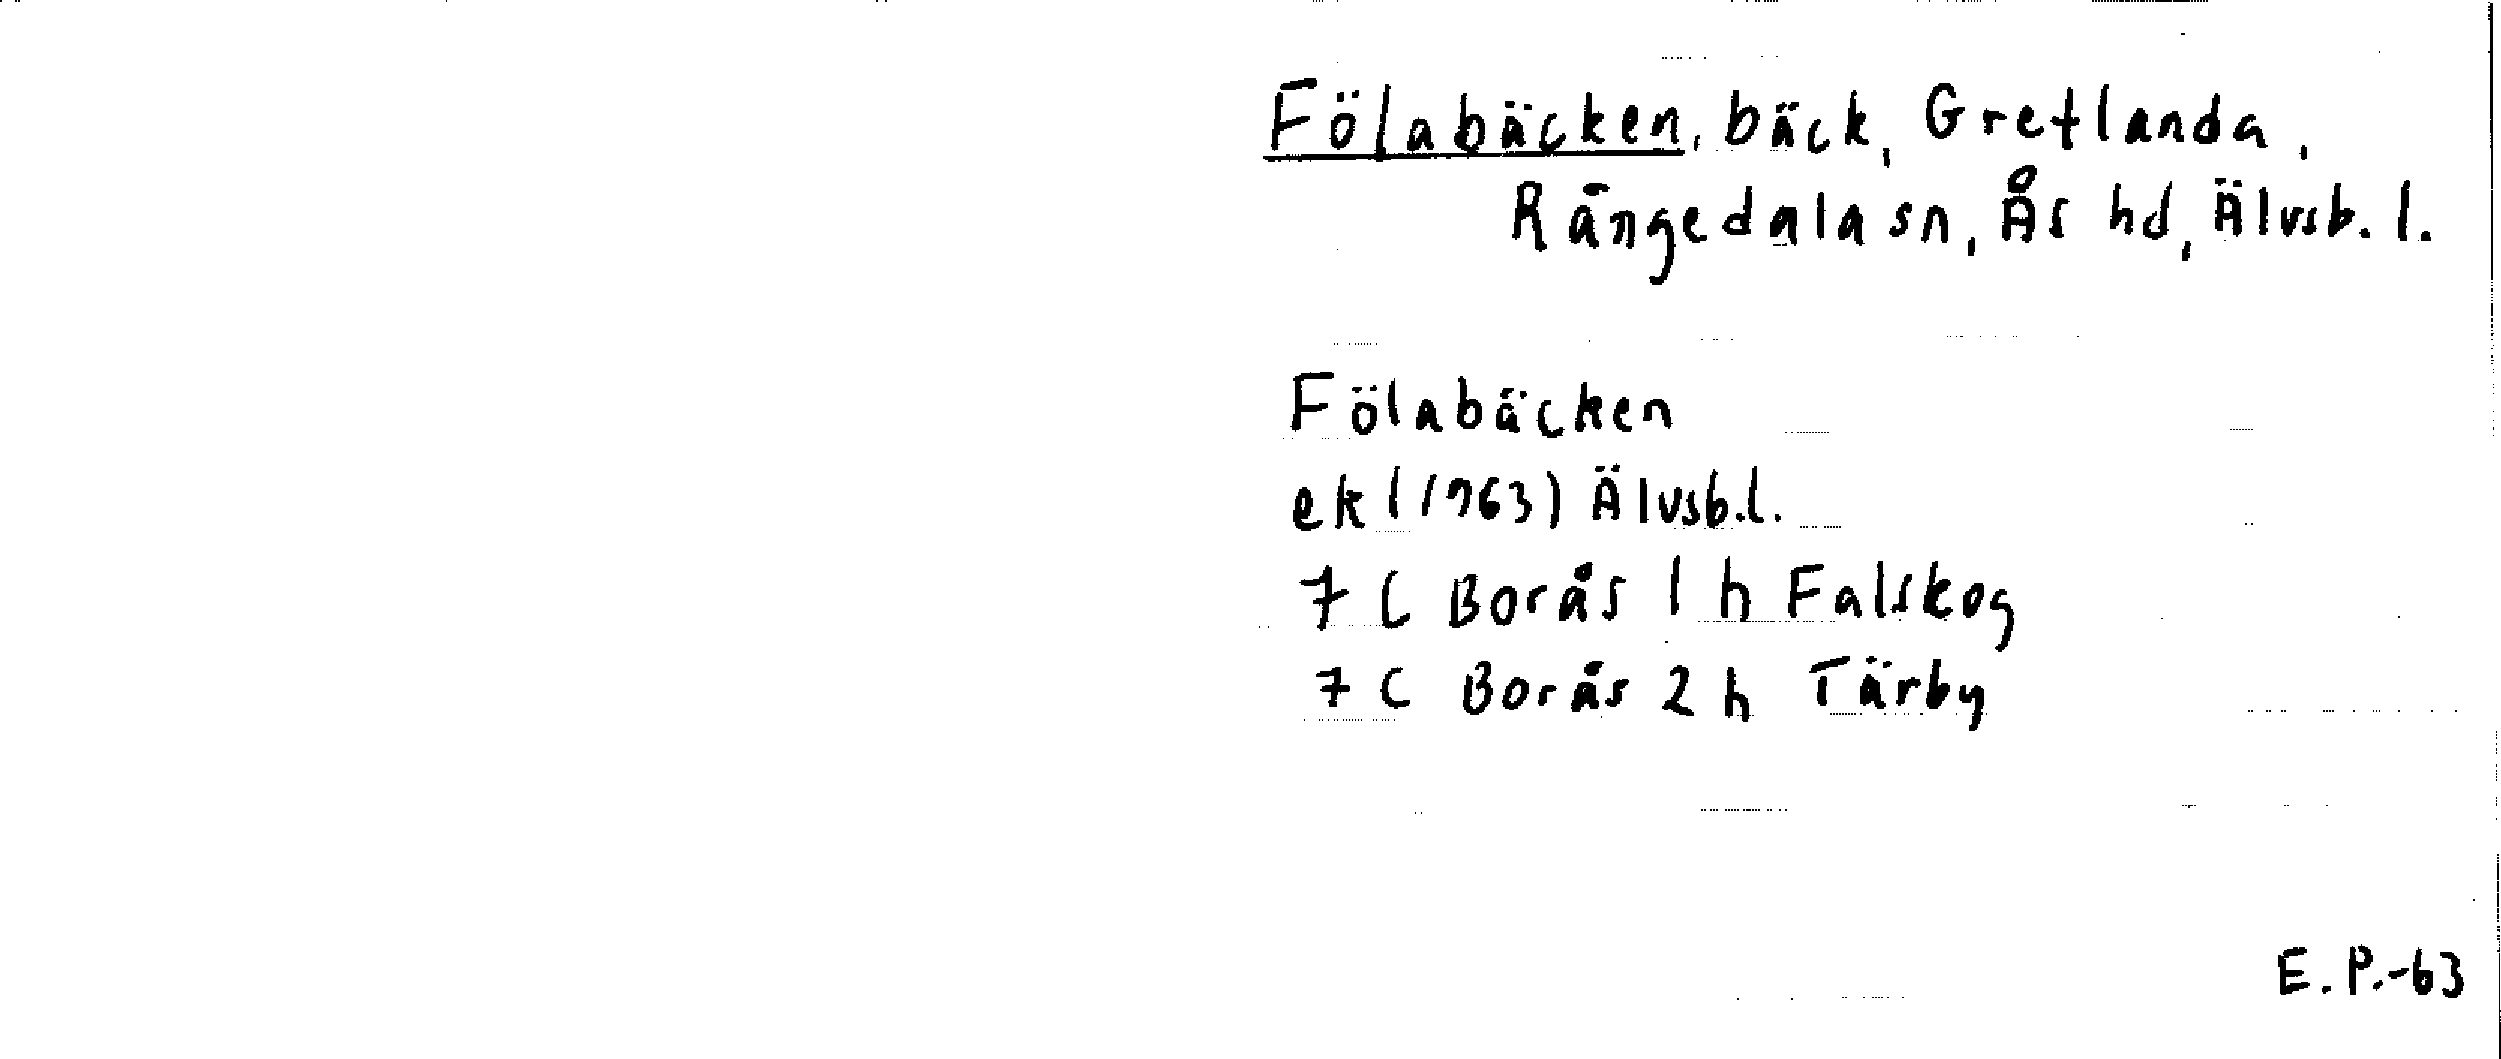 Fölabäcken, bäck, Gretlanda,
Rångedala sn, Ås hd, Älvsb. l.
Fölabäcken
ek (1963) Älvsb.l.
7 C Borås 1 h Falskog
7 C Borås 2 h Tärby
E.P.-63